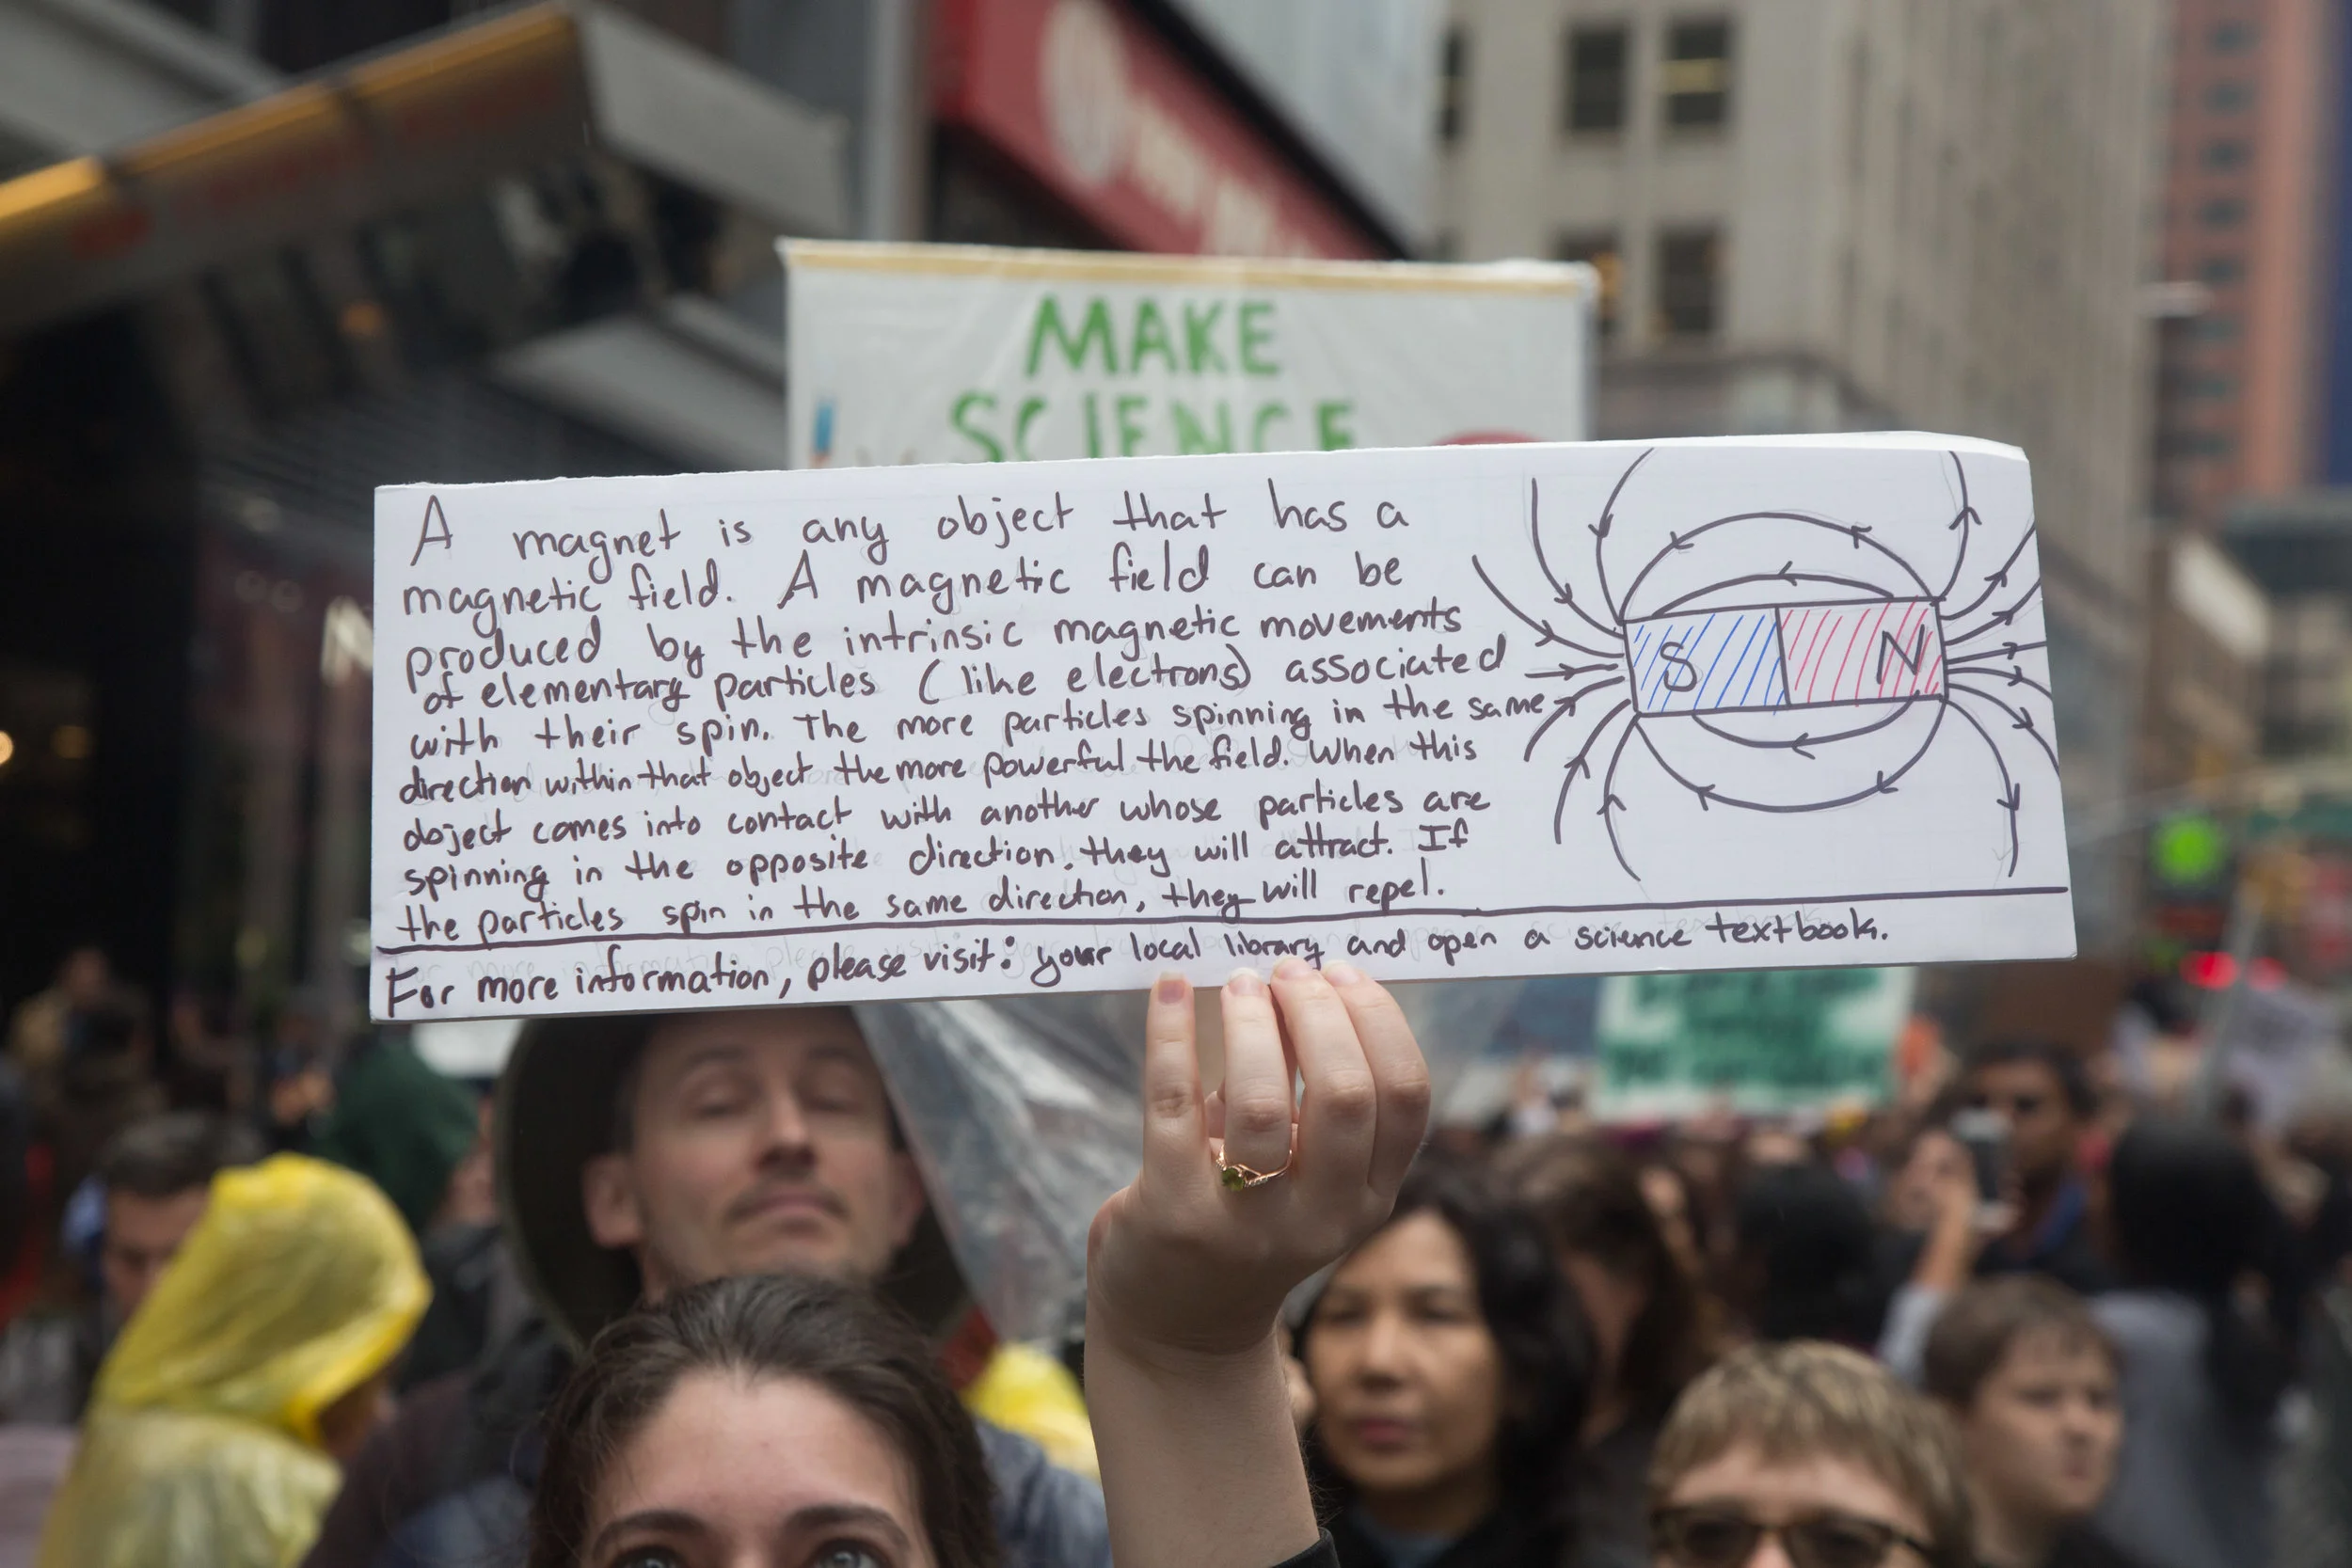 MAKE
SCIENCE
A magnet is any object that has a
magnetic field. A magnetic field can be
produced by the intrinsic magnetic movements
of elementary particles (like electrons) associated
with their spin. The more particles spinning in the same
direction within that object the more powerful the field. When this
object comes into contact with another whose particles are
spinning in the opposite direction, they will attract. If
the particles spin in the same direction, they will repel.
S N
For more information, please visit: your local library and open a science textbook.